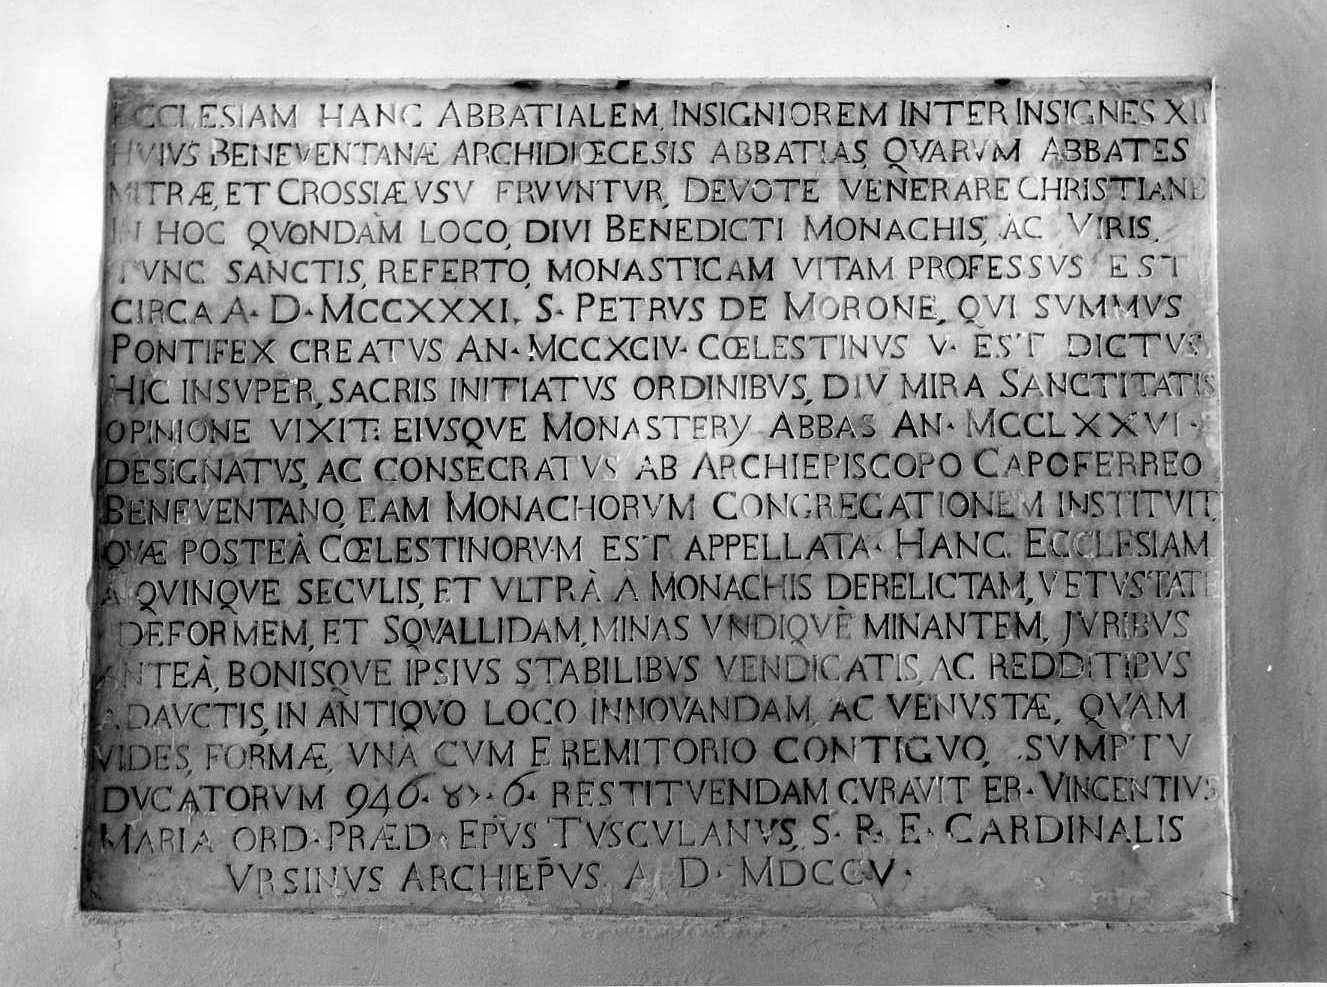 ECCLESIAM HANC ABBATIALEM, INSIGNIOREM INTER INSIGNES XII
HVIVS BENEVENTANÆ ARCHIDIŒCESIS ABBATIAS, QVARVM ABBATES
MITRÆ, ET CROSSIÆ VSV FRVVNTVR, DEVOTE VENERARE CHRISTIANE
IN HOC QVONDÀM LOCO, DIVI BENEDICTI MONACHIS, AC VIRIS,
TVNC SANCTIS, REFERTO, MONASTICAM VITAM PROFESSVS EST
CIRCA A·D·MCCXXXI, S·PETRVS DE MORONE, QVI SVMMVS
PONTIFEX CREATVS AN·MCCXCIV·CŒLESTINVS V·EST DICTVS
HIC INSVPER, SACRIS INITIATVS ORDINIBVS, DIV MIRA SANCTITATIS
OPINIONE VIXIT: EIVSQVE MONASTERY ABBAS AN·MCCLXXVI·
DESIGNATVS, AC CONSECRATVS AB ARCHIEPISCOPO CAPOFERREO
BENEVENTANO, EAM MONACHORVM CONGREGATIONEM INSTITVIT,
QVÆ POSTEÀ CŒLESTINORVM EST APPELLATA·HANC ECCLESIAM
A QVINQVE SECVLIS, ET VLTRÀ A MONACHIS DERELICTAM, VETVSTATE
DEFORMEM, ET SQVALLIDAM, MINAS VNDIQVÈ MINANTEM, JVRIBVS
ANTEÀ, BONISQVE IPSIVS STABILIBVS VENDICATIS, AC REDDITIBVS
ADAVCTIS, IN ANTIQVO LOCO INNOVANDAM, AC VENVSTÆ, QVAM
VIDES, FORMÆ, VNA CVM EREMITORIO CONTIGVO, SVMPTV
DVCATORVM 946· 6· RESTITVENDAM CVRAVIT FR·VINCENTIVS
MARIA ORD·PRÆD·EPVS TVSCVLANVS, S·R·E·CARDINALIS
VRSINVS ARCHIEPVS A D·MDCCV·